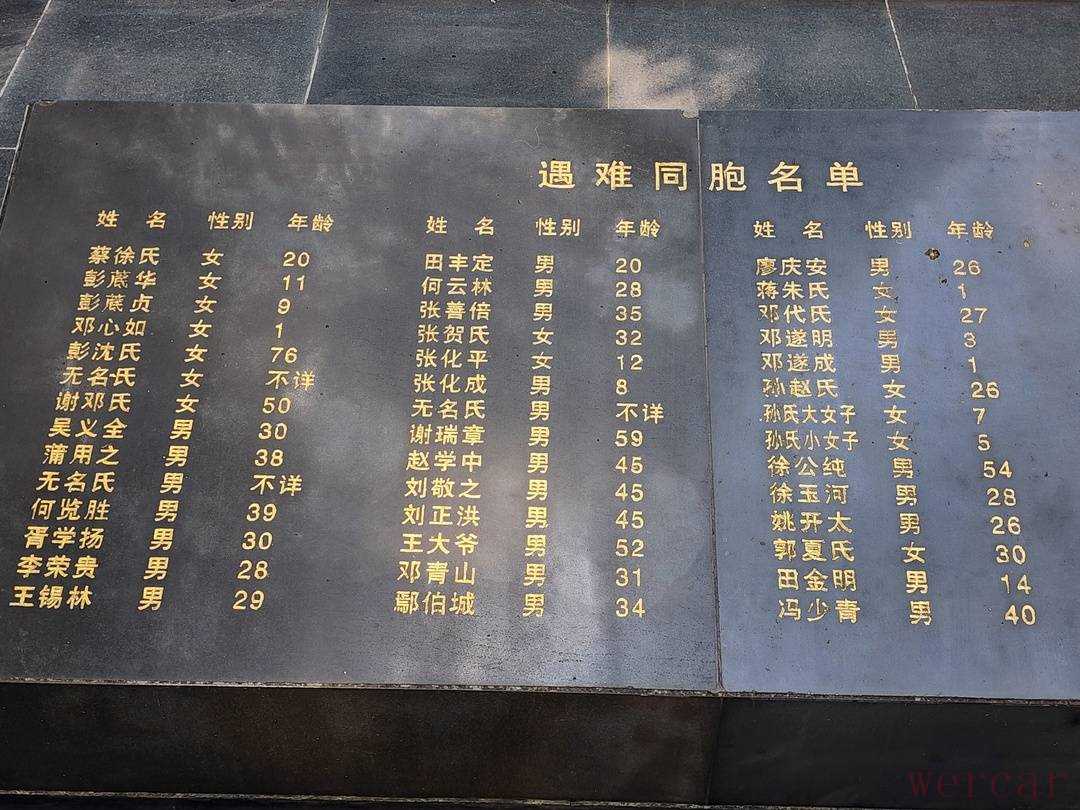 遇难同胞名单
姓 名 性别 年龄
蔡徐氏 女 20
彭蔗华 女 11
彭蔗贞 女 9
邓心如 女 1
彭沈氏 女 76
无名氏 女 不详
谢邓氏 女 50
吴义全 男 30
蒲用之 男 38
无名氏 男 不详
何览胜 男 39
胥学扬 男 30
李荣贵 男 28
王锡林 男 29
姓 名 性别 年龄
田丰定 男 20
何云林 男 28
张善倍 男 35
张贺氏 女 32
张化平 女 12
张化成 男 8
无名氏 男 不详
谢瑞章 男 59
赵学中 男 45
刘敬之 男 45
刘正洪 男 45
王大爷 男 52
邓青山 男 31
鄢伯城 男 34
姓 名 性别 年龄
廖庆安 男 26
蒋朱氏 女 1
邓代氏 女 27
邓遂明 男 3
邓遂成 男 1
孙赵氏 女 26
孙氏大女子 女 7
孙氏小女子 女 5
徐公纯 男 54
徐玉河 男 28
姚开太 男 26
郭夏氏 女 30
田金明 男 14
冯少青 男 40
wercar